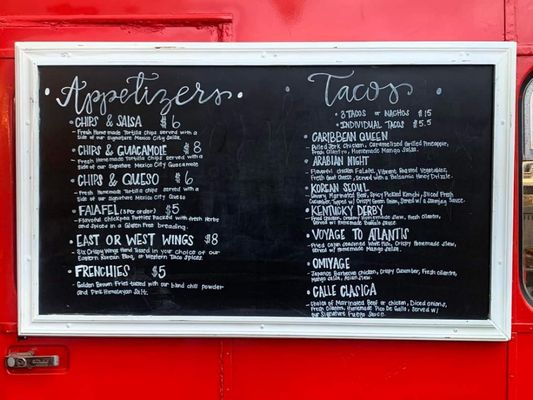 Appetizers
CHIPS & SALSA $6
- Fresh Home made Tortilla Chips served with a
Side of our Signature Mexico City Salsa
CHIPS & GUACAMOLE $8
- Fresh Homemade Tortilla Chips served with a
Side of our Signature Mexico City Guacamole
CHIPS & QUESO $6
- Fresh Homemade Tortilla Chips served with a
Side of our Signature Mexico City Guacamole
FALAFEL (3 Per order) $5
- Flavorful chickpea Patties tucked with fresh herbs
and Spices in a Gluten Free breading.
EAST OR WEST WINGS $8
- Six Crispy Wings Hand Tossed in your choice of our
Eastern Korean BBQ, or Western Taco Spices
FRENCHIES $5
- Golden Brown Fries tossed with our blend chili powder
and Pink Himalayan Salt.
Tacos
3 TACOS or NACHOS $15
INDIVIDUAL TACOS $5.5
CARIBBEAN QUEEN
- Pulled Jerk Chicken, Caramelized Grilled Pineapple,
Fresh Cilantro, Homemade Mango Salsa.
ARABIAN NIGHT
- Flavorful chicken Falafel, Vibrant Roasted Vegetables,
Fresh Goat Cheese, Served with a Balsamic Honey Drizzle.
KOREAN SEOUL
- Savory Marinated Beef, Spicy Pickled Kimchi, Sliced Fresh
Cucumber, Topped w/ Crispy Green Onion, Served w/ a Samjang Sauce.
KENTUCKY DERBY
- Fried Chicken, Crispy Homemade Slaw, Fresh cilantro,
Served w/ Homemade Buffalo Sauce.
VOYAGE TO ATLANTIS
- Fried Cajun seasoned White Fish, Crispy Homemade slaw,
Served w/ Homemade
OMIYAGE
- Japanese Barbecue chicken, Crispy Cucumber, Fresh cilantro,
Mango Salsa, Asian Slaw.
CALLE CLASICA
- Choice of Marinated Beef or Chicken, Diced onions,
Fresh Cilantro, Homemade Pico De Gallo, Served w/
our Signature Fuego Sauce